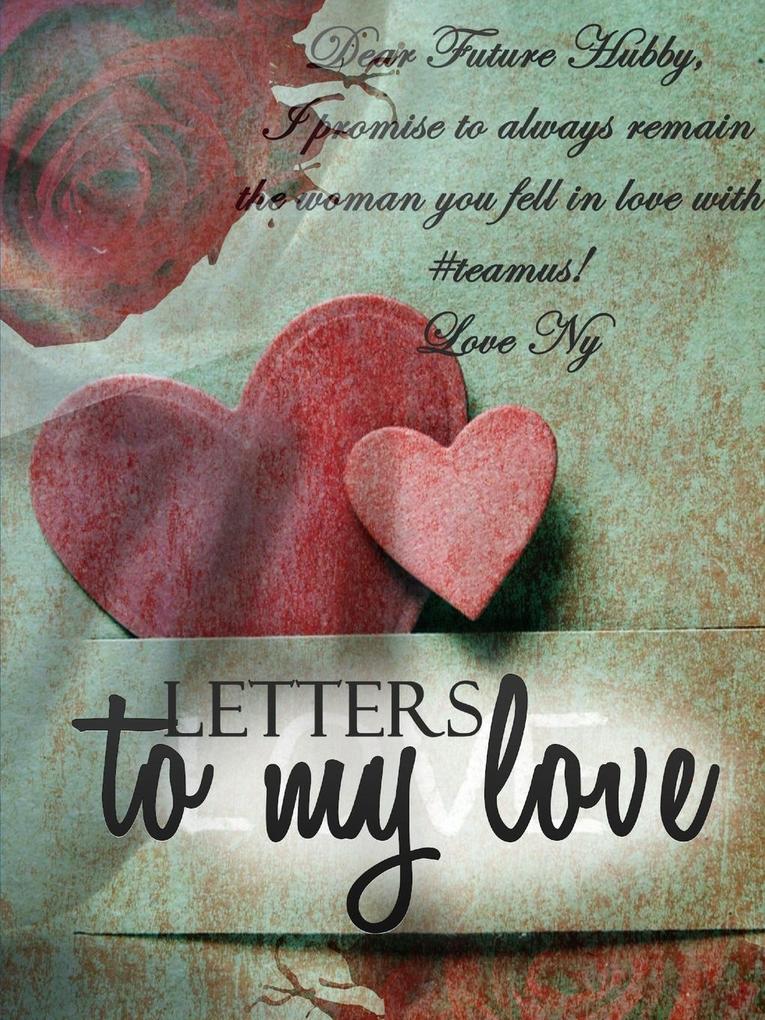 Dear Future Hubby,
I promise to always remain
the woman you fell in love with
#teamus!
Love Ny
LETTERS
LOVE
to my love